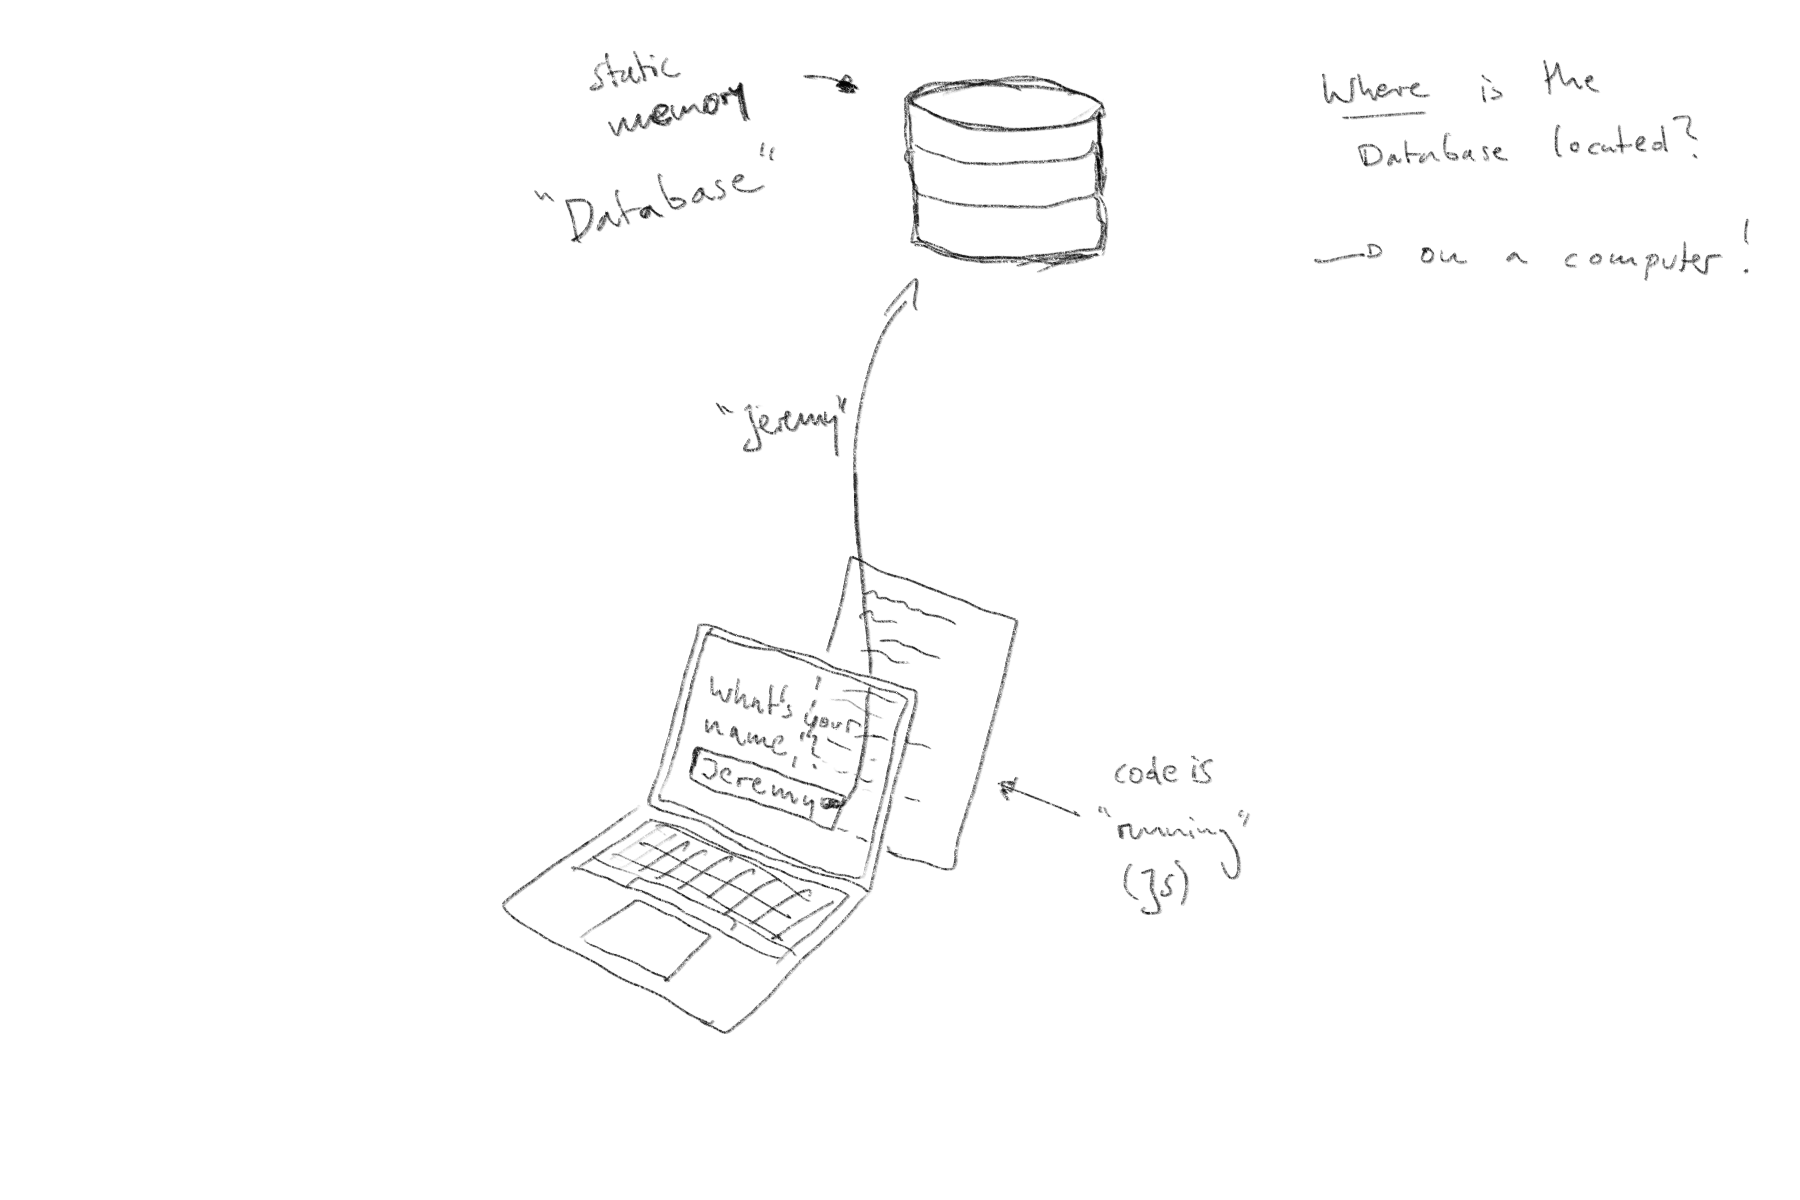 static
memory
"Database"
Where is the
Database located?
on a computer!
"Jeremy"
What's your
name?
Jeremy
code is
"running"
(JS)